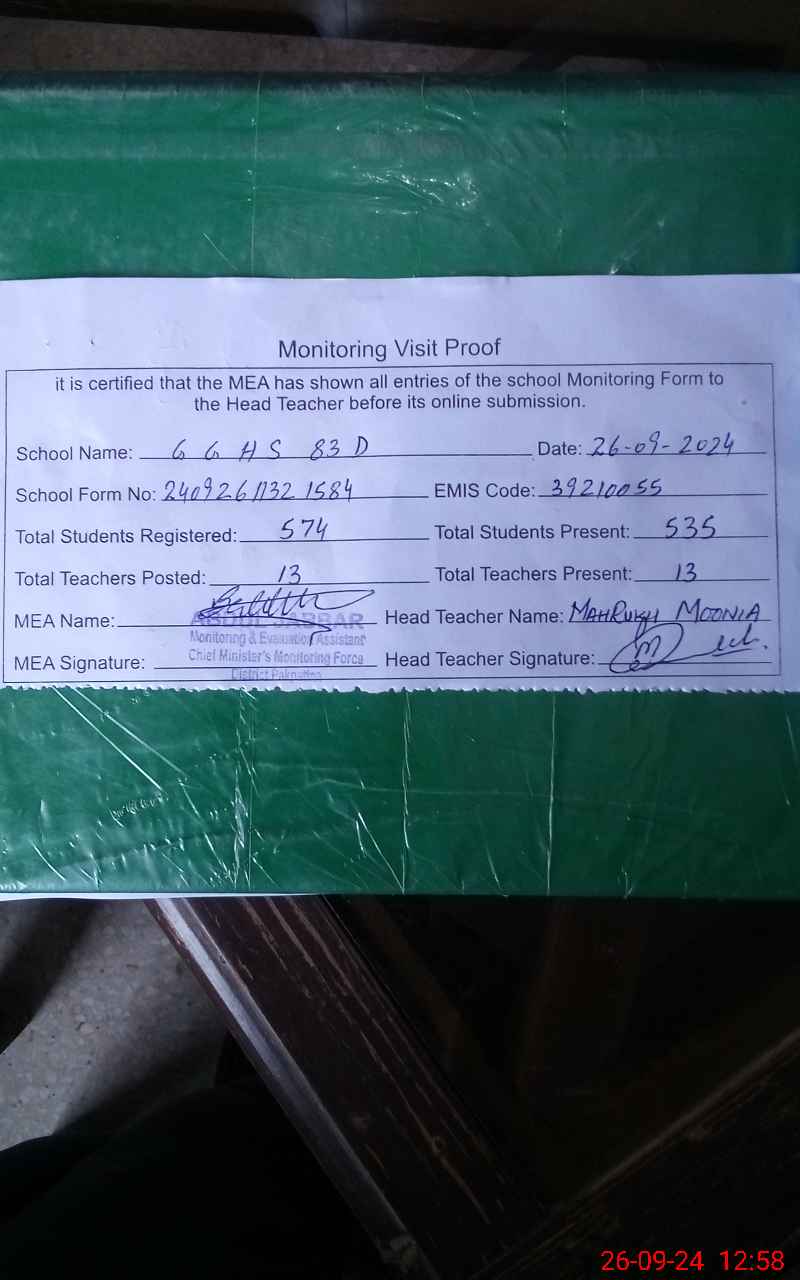 Monitoring Visit Proof
it is certified that the MEA has shown all entries of the school Monitoring Form to
the Head Teacher before its online submission.
School Name: G G H S 83 D Date: 26-09-2024
School Form No: 2409261132 1584 EMIS Code: 39210055
Total Students Registered: 574 Total Students Present: 535
Total Teachers Posted: 13 Total Teachers Present: 13
MEA Name: ABDUL JABBAR Head Teacher Name: MAHRUKH MOONIA
Monitoring & Evaluation Assistant
MEA Signature: Chief Minister's Monitoring Force Head Teacher Signature:
District Pakpattan
26-09-24 12:58